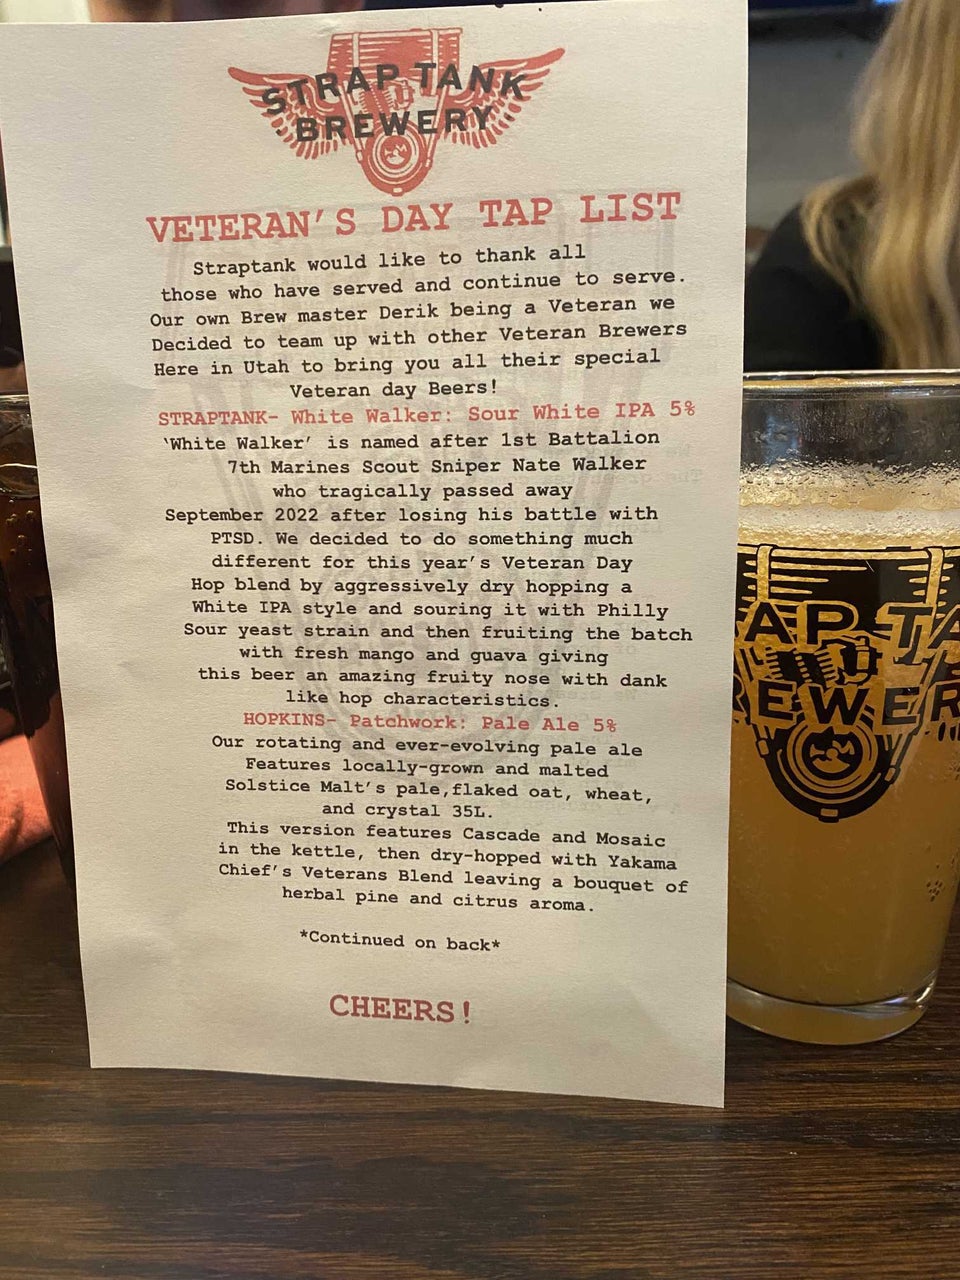 STRAP TANK
· BREWERY ·
VETERAN'S DAY TAP LIST
Straptank would like to thank all
those who have served and continue to serve.
Our own Brew master Derik being a Veteran we
Decided to team up with other Veteran Brewers
Here in Utah to bring you all their special
Veteran day Beers!
STRAPTANK- White Walker: Sour White IPA 5%
'White Walker' is named after 1st Battalion
7th Marines Scout Sniper Nate Walker
who tragically passed away
September 2022 after losing his battle with
PTSD. We decided to do something much
different for this year's Veteran Day
Hop blend by aggressively dry hopping a
White IPA style and souring it with Philly
Sour yeast strain and then fruiting the batch
with fresh mango and guava giving
this beer an amazing fruity nose with dank
like hop characteristics.
HOPKINS- Patchwork: Pale Ale 5%
Our rotating and ever-evolving pale ale
Features locally-grown and malted
Solstice Malt's pale,flaked oat, wheat,
and crystal 35L.
This version features Cascade and Mosaic
in the kettle, then dry-hopped with Yakama
Chief's Veterans Blend leaving a bouquet of
herbal pine and citrus aroma.
*Continued on back*
CHEERS!
AP TA
EWER